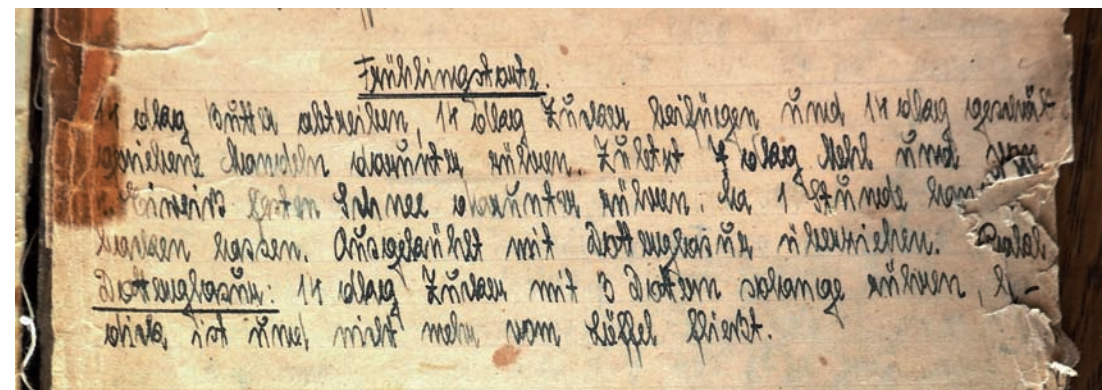 Frühlingstorte.
14 dkag Butter abtreiben, 14 dkag Zucker beifügen und 14 dkag
geriebene Mandeln darunter rühren. Zuletzt 7 dkag Mehl und
Eiweiß festen Schnee darunter rühren. 1 Stunde
backen lassen. Ausgekühlt mit Dotterglasur überziehen.
Dotterglasur: 14 dkag Zucker mit 3 Dottern solange rühren,
dick ist und nicht mehr vom Löffel fließt.